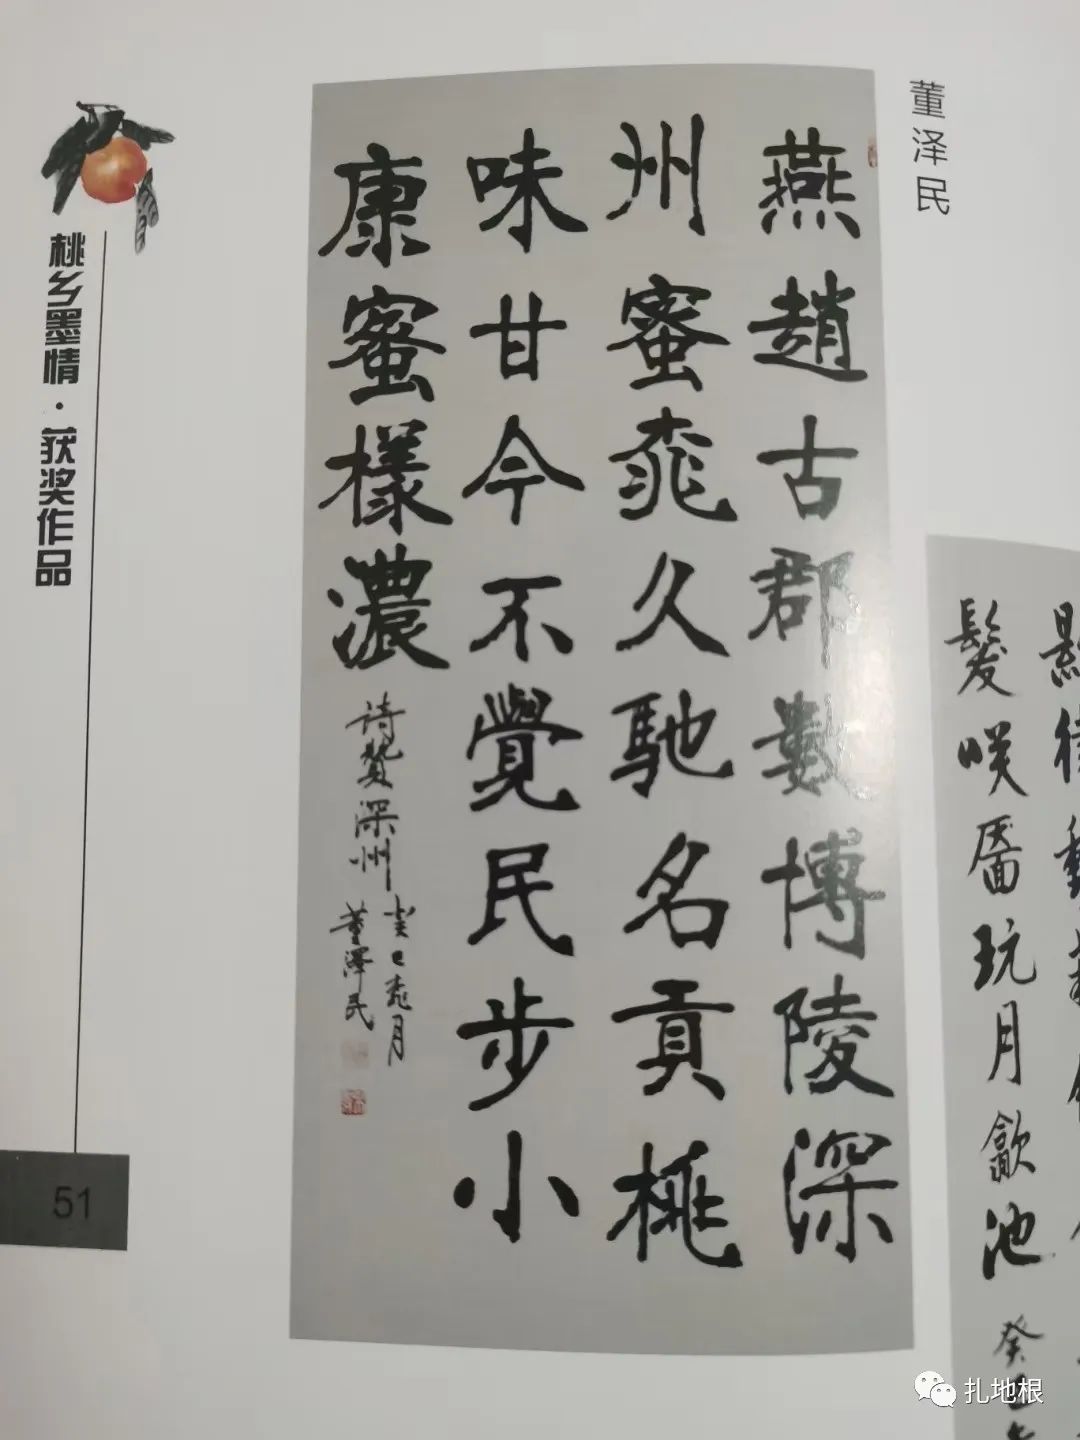 董泽民
燕趙古郡數博陵深
州蜜桃久馳名貢桃
味甘今不覺民步小
康蜜樣濃
诗贊深州
癸巳桃月
董澤民
桃乡墨情·获奖作品
51
髮咲靥玩月歙池
癸巳
扎地根